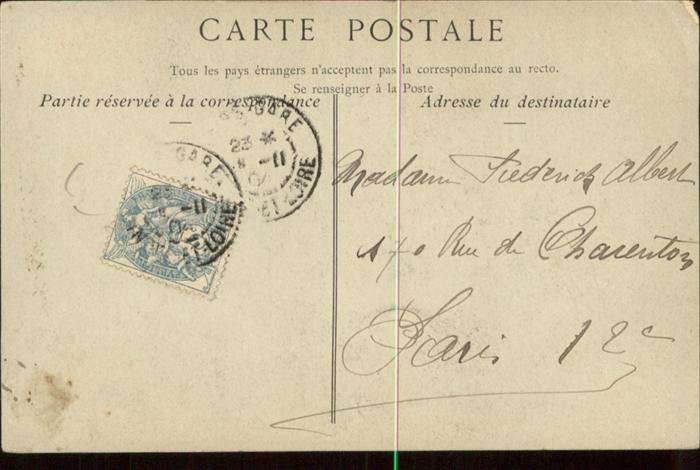 CARTE POSTALE
Tous les pays étrangers n'acceptent pas la correspondance au recto.
Se renseigner à la Poste
Partie réservée à la correspondance
Adresse du destinataire
GARE
23
-11
04
ET-LOIRE
GARE
-11
04
ET-LOIRE
Madame Frederick Albert
170 Rue de Charenton
Paris 12e